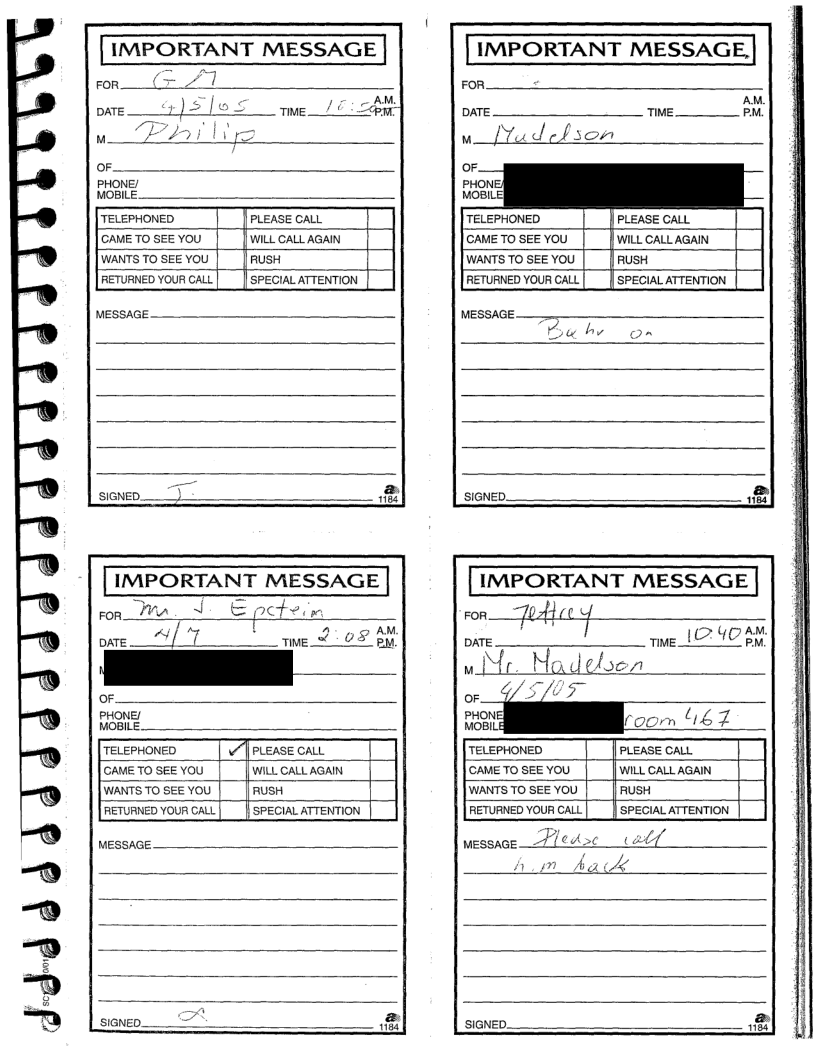 IMPORTANT MESSAGE
FOR GM
DATE 4/5/05 TIME A.M. P.M.
M Philip
OF
PHONE/
MOBILE
TELEPHONED PLEASE CALL
CAME TO SEE YOU WILL CALL AGAIN
WANTS TO SEE YOU RUSH
RETURNED YOUR CALL SPECIAL ATTENTION
MESSAGE
SIGNED J.
a
1184
IMPORTANT MESSAGE
FOR
DATE TIME A.M. P.M.
M Madelson
OF
PHONE/
MOBILE
TELEPHONED PLEASE CALL
CAME TO SEE YOU WILL CALL AGAIN
WANTS TO SEE YOU RUSH
RETURNED YOUR CALL SPECIAL ATTENTION
MESSAGE
on
SIGNED
a
1184
IMPORTANT MESSAGE
FOR Mr. J. Epctein
DATE 4/7 TIME 2:08 A.M. P.M.
OF
PHONE/
MOBILE
TELEPHONED ✓ PLEASE CALL
CAME TO SEE YOU WILL CALL AGAIN
WANTS TO SEE YOU RUSH
RETURNED YOUR CALL SPECIAL ATTENTION
MESSAGE
SIGNED
a
1184
IMPORTANT MESSAGE
FOR Jeffrey
DATE TIME 10:40 A.M. P.M.
M Mr. Madelson
OF 4/5/05
PHONE
MOBILE room 467
TELEPHONED PLEASE CALL
CAME TO SEE YOU WILL CALL AGAIN
WANTS TO SEE YOU RUSH
RETURNED YOUR CALL SPECIAL ATTENTION
MESSAGE Please call
him back
SIGNED
a
1184